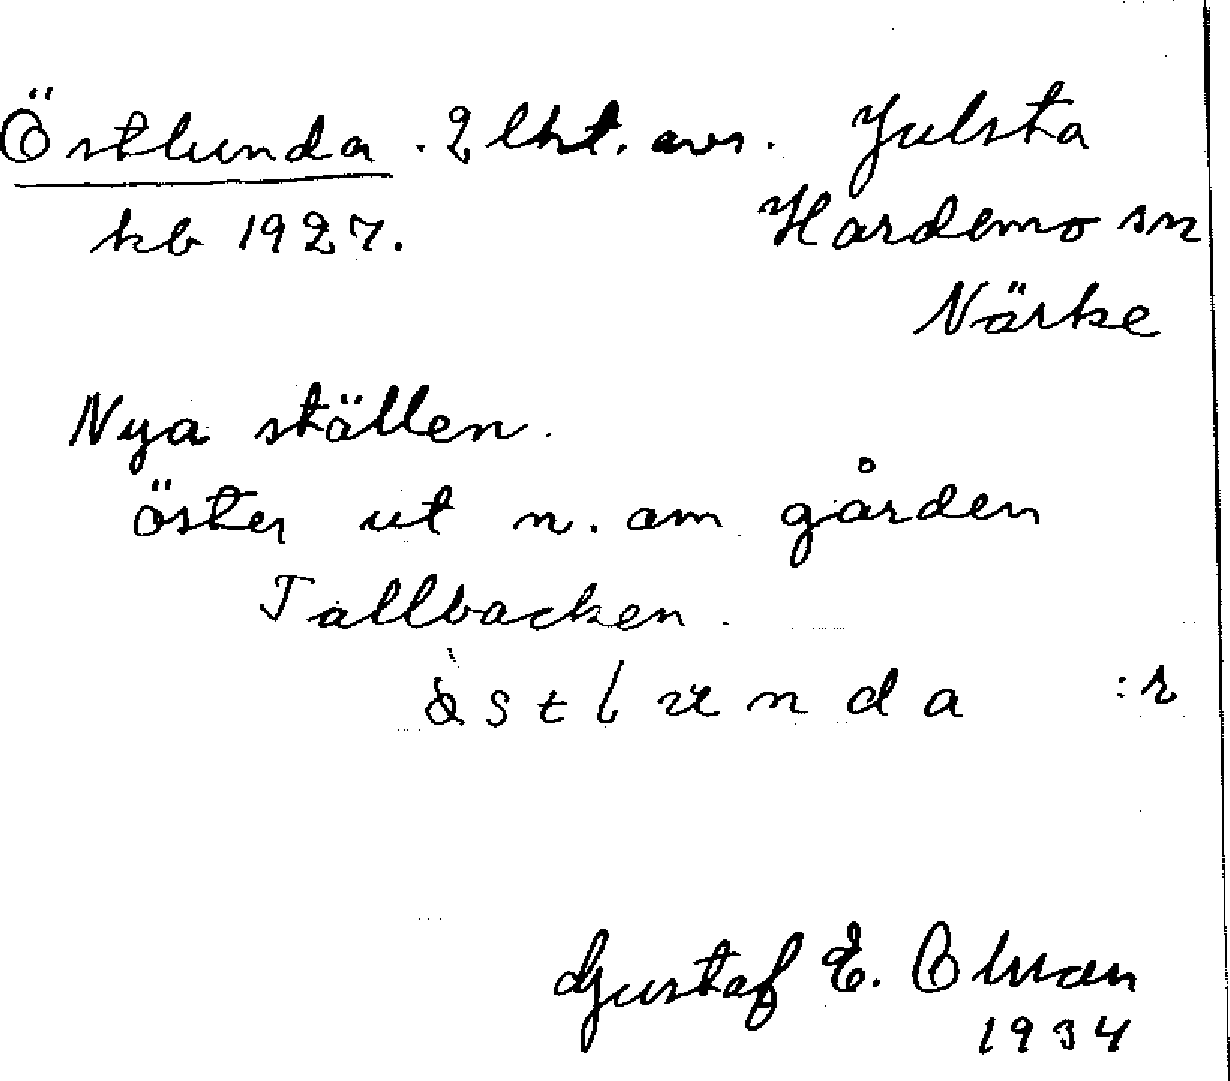 Östlunda. 2 lht. avs. Julsta
kb 1927. Hardemo sn
Närke
Nya ställen.
öster ut n. om gården
Tallbacken.
östlunda :r
Gustaf E. Olsson
1934